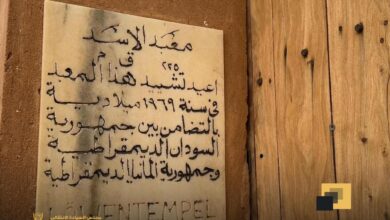 معبد الاسد
ق م
٢٢٥
اعيد تشييد هذا المعبد
في سنة ١٩٦٩ ميلادية
بالتضامن بين جمهورية
السودان الديمقراطية
وجمهورية المانيا الديمقراطية
LÖWENTEMPEL